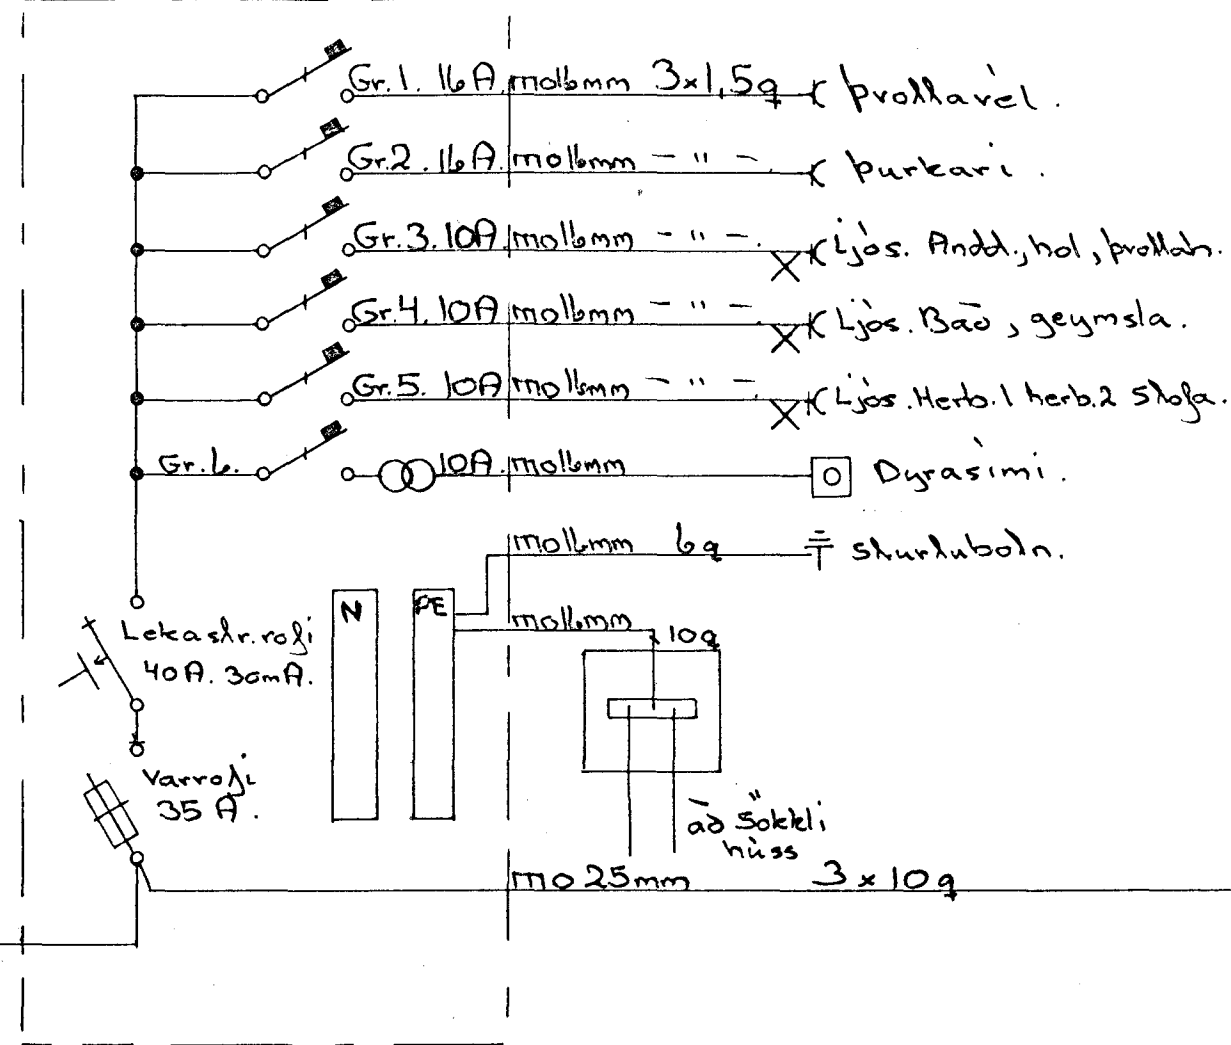 Gr.1. 16A. mo16mm 3x1,5q þvottavél.
Gr.2. 16A. mo16mm - " - þurkari.
Gr.3. 10A mo16mm - " - Ljós. Andd., hol, þvottah.
Gr.4. 10A mo16mm - " - Ljós. Bað, geymsla.
Gr.5. 10A mo16mm - " - Ljós. Herb.1 herb.2 stofa.
Gr.6. 10A. mo16mm Dyrasími.
mo16mm 6q sturtubotn.
N PE mo16mm
Lekastr.rofi 10q
40A. 30mA.
Varrofi
35A.
að sökkli
húss
mo25mm 3x10q